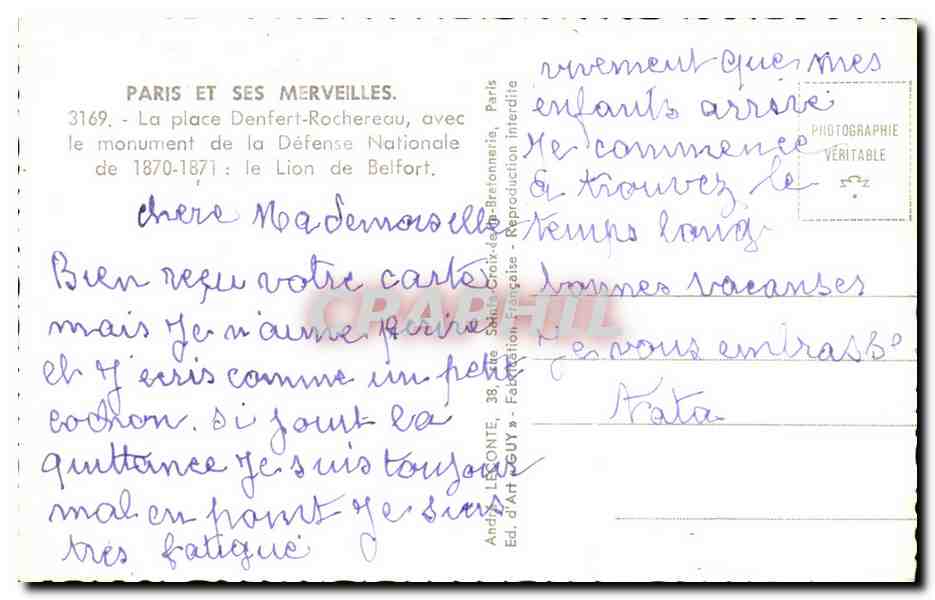 PARIS ET SES MERVEILLES.
3169. - La place Denfert-Rochereau, avec
le monument de la Défense Nationale
de 1870-1871 : le Lion de Belfort.
chere Mademoiselle
Bien reçu votre carte
mais Je n'aime écrire
et J'écris comme un petit
cochon. si joint la
quittance Je suis toujour
mal en point Je suis
tres fatigué
André LECONTE, 38, rue Sainte-Croix-de-la-Bretonnerie, Paris
Ed. d'Art « GUY » - Fabrication Française - Reproduction interdite
vivement que mes
enfants arrive
Je commence
a trouvez le
temps long
bonnes vacanses
Je vous embrasse
Nata
PHOTOGRAPHIE
VÉRITABLE
CPAPHIL